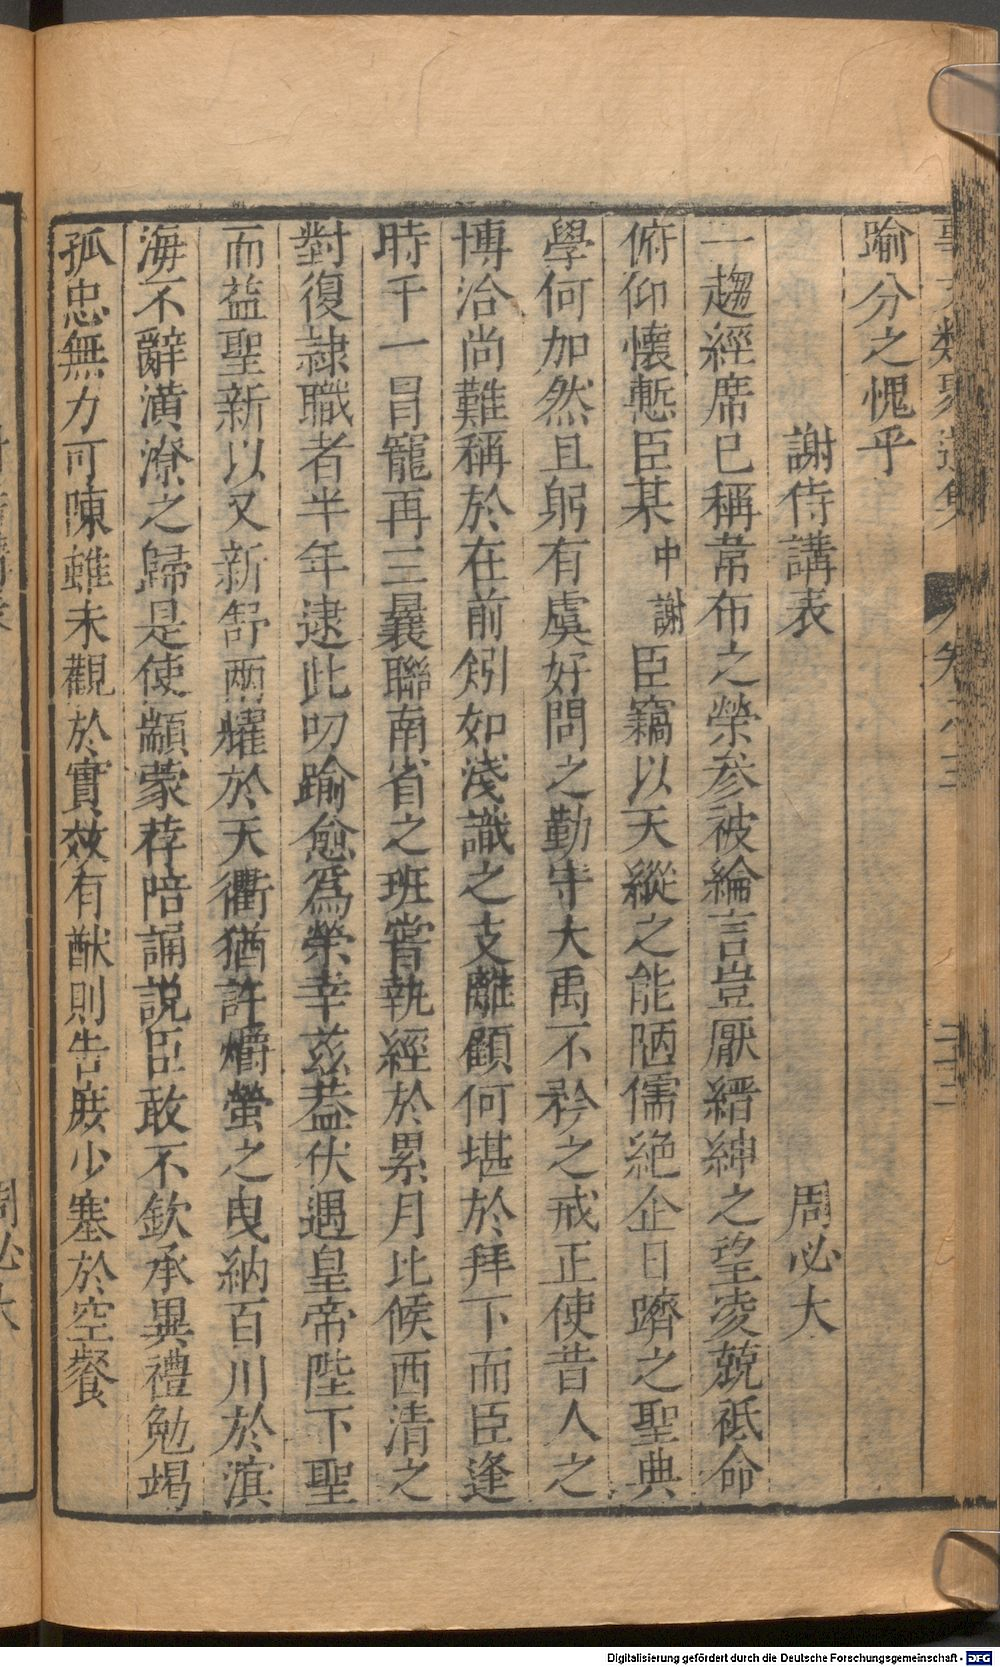 事文類聚遺集 卷之三 二十二
踰分之愧乎
謝侍講表 周必大
一趨經席已稱韋布之榮參被綸言豈厭縉紳之望凌兢祗命
俯仰懷慙臣某中謝臣竊以天縱之能陋儒絶企日躋之聖典
學何加然且躬有虞好問之勤守大禹不矜之戒正使昔人之
博洽尚難稱於在前矧如淺識之支離顧何堪於拜下而臣逢
時千一冒寵再三曩聯南省之班嘗執經於累月比候西清之
對復隷職者半年逮此叨踰愈爲榮幸兹葢伏遇皇帝陛下聖
而益聖新以又新舒兩耀於天衢猶許爝螢之曳納百川於滨
海不辭潢潦之歸是使顓蒙荐陪誦説臣敢不欽承異禮勉竭
孤忠無力可陳雖未觀於實效有猷則告庻少塞於空餐
Digitalisierung gefördert durch die Deutsche Forschungsgemeinschaft - DFG